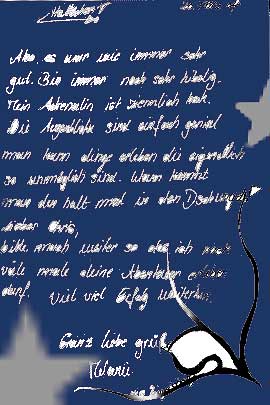 Also, es war wie immer sehr
gut. Bin immer noch sehr hibbelig.
Mein Adrenalin ist ziemlich hoch.
Die Augenblicke sind einfach genial
man kann dinge erleben die eigentlich
so unmöglich sind. Wann kommt
man den halt mal in den Dschungel
Lieber Chris,
bitte mach weiter so das ich noch
viele male deine Abenteuer erleben
darf. Viel viel Erfolg weiterhin.
Ganz liebe grüße